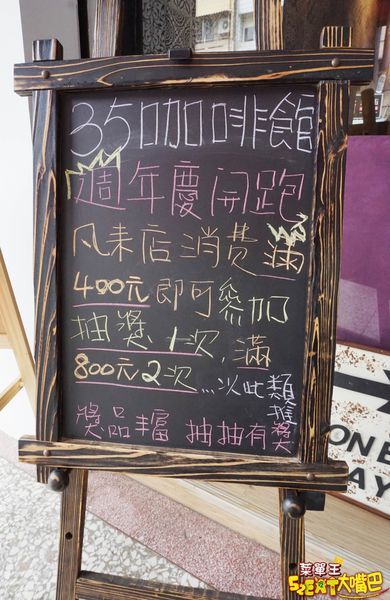 35咖啡館
週年慶開跑
凡來店消費滿
400元即可參加
抽獎1次,滿
800元2次...以此類推
獎品丰富 抽抽有獎
ONE
AY
菜單王
SZEAT大嘴巴